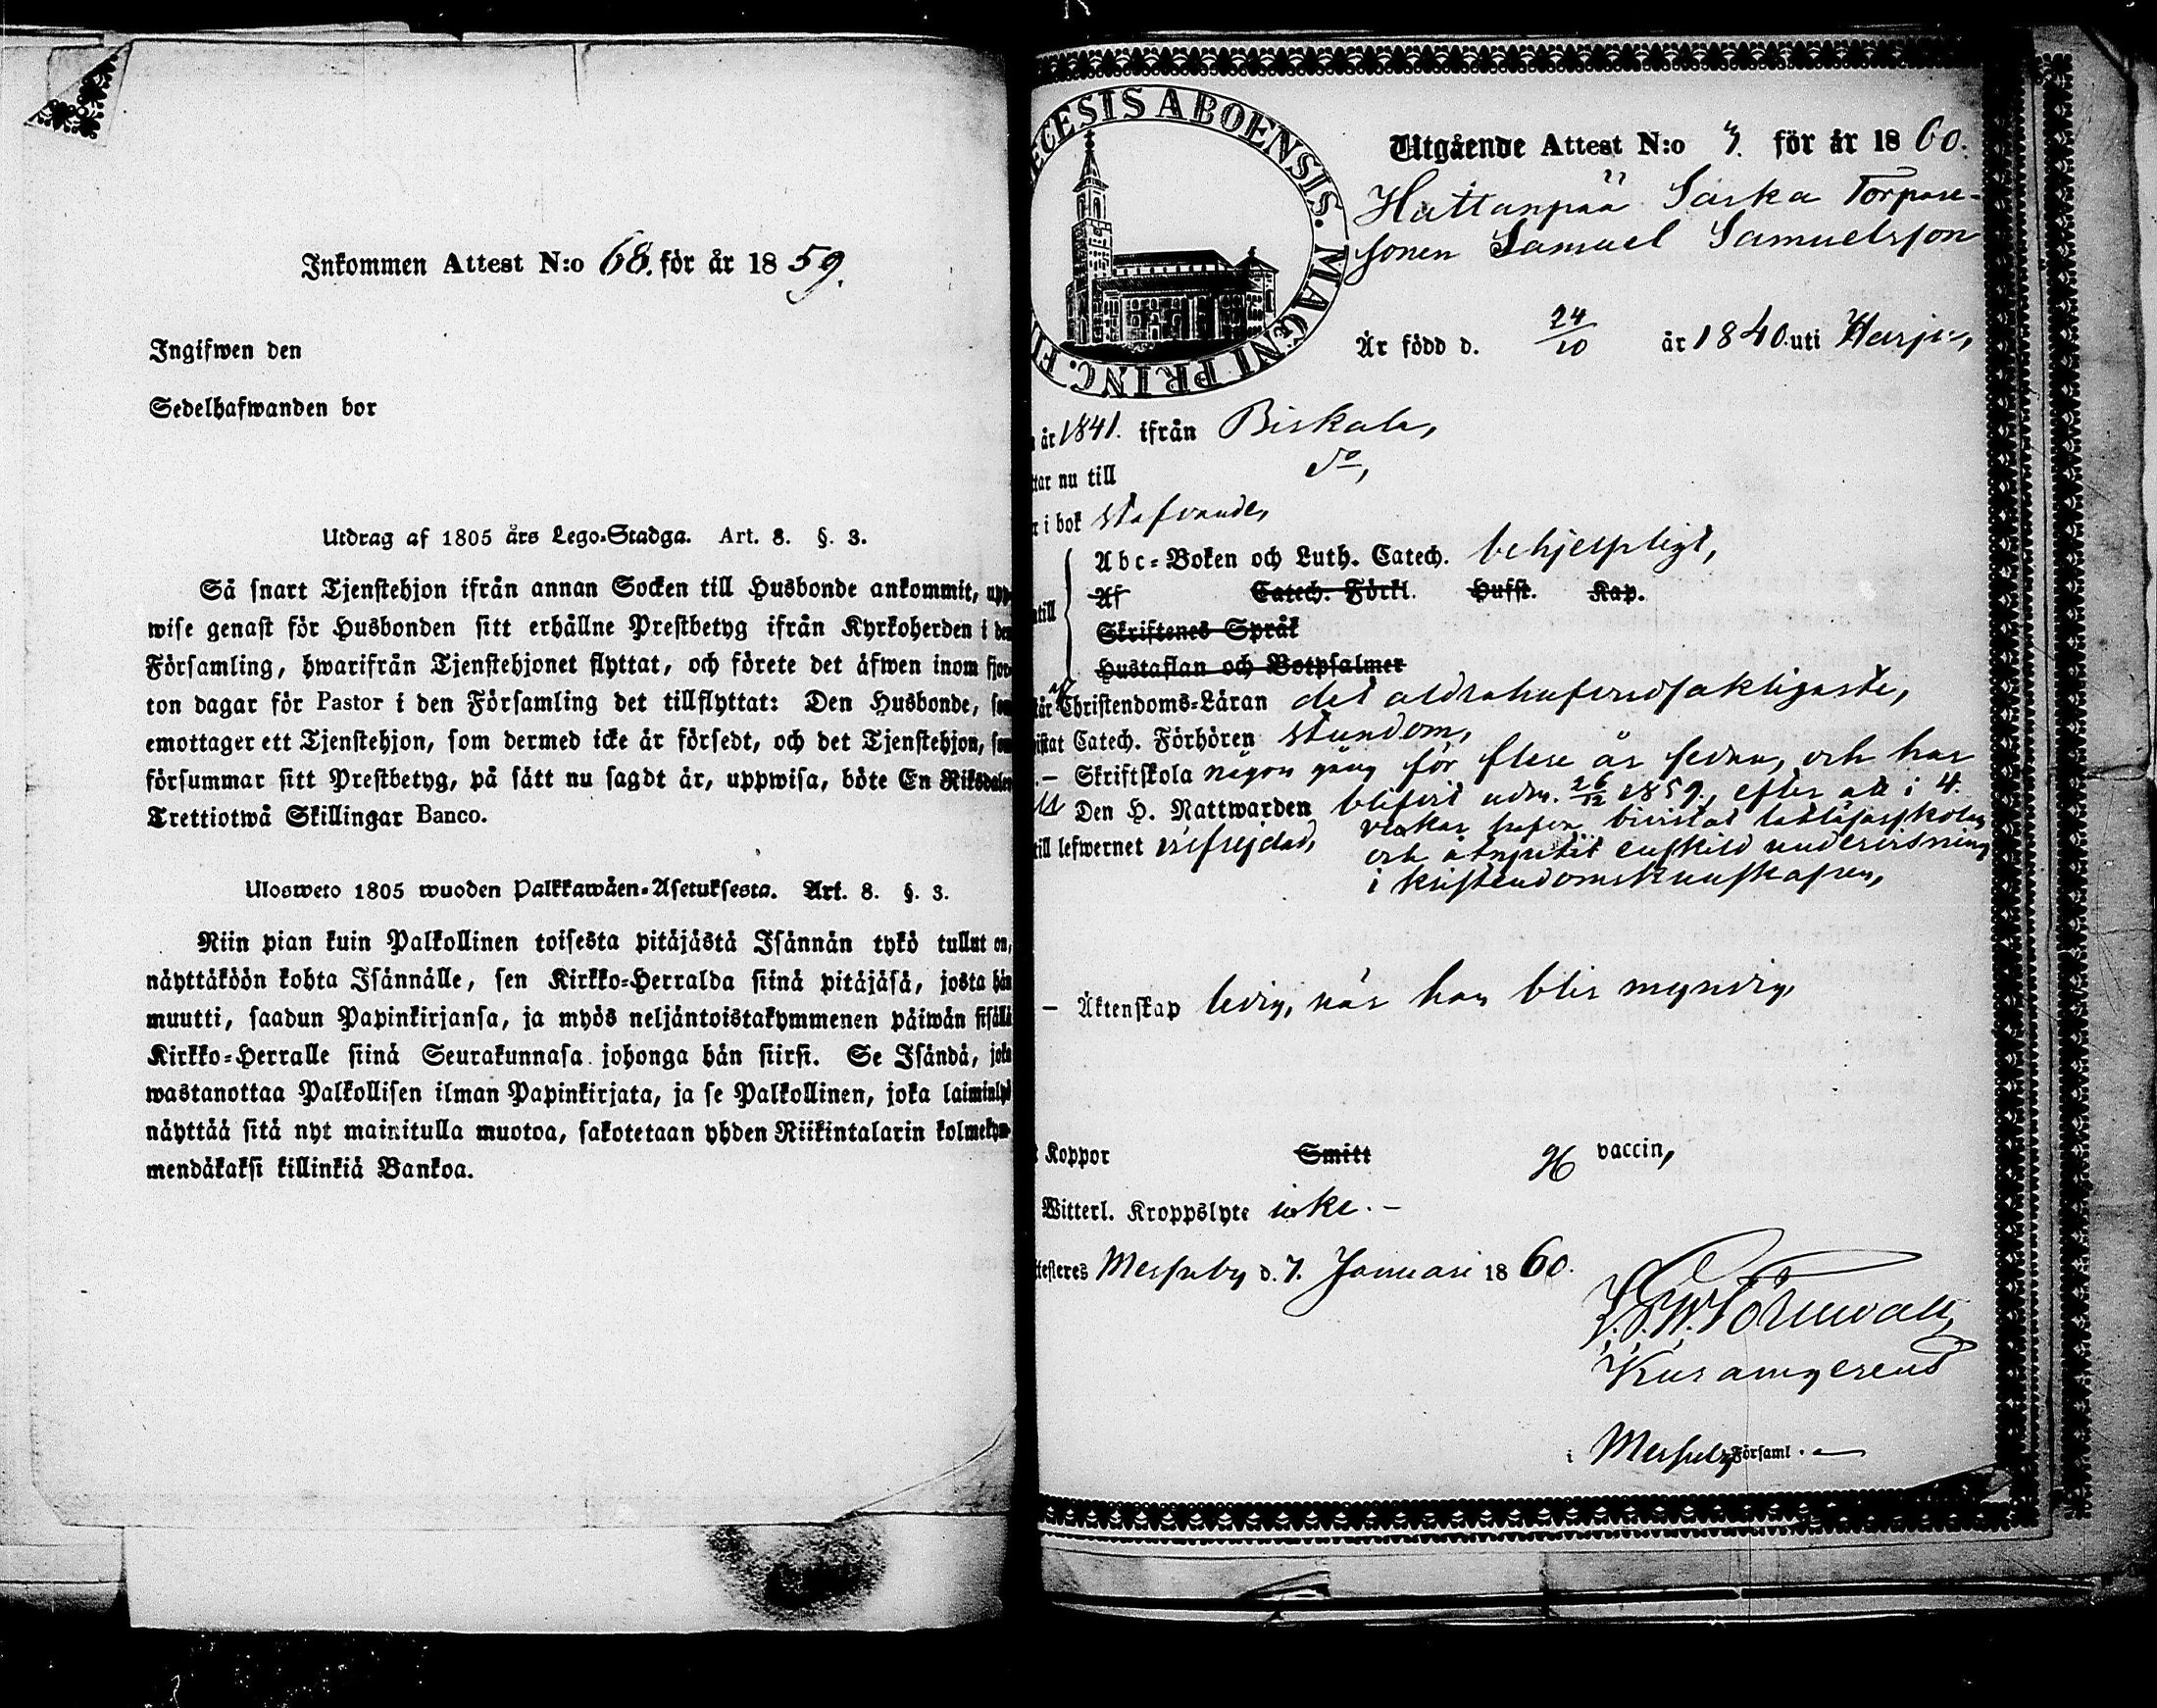 Inkommen Attest N:o 68. för år 1859.
Ingifwen den
Sedelhafwanden bor
Utdrag af 1805 års Lego-Stadga. Art. 8. §. 3.
Så snart Tjenstehjon ifrån annan Socken till Husbonde ankommit, upp-
wise genast för Husbonden sitt erhållne Prestbetyg ifrån Kyrkoherden i den
Församling, hwarifrån Tjenstehjonet flyttat, och förete det äfwen inom fjor-
ton dagar för Pastor i den Församling det tillflyttat: Den Husbonde, som
emottager ett Tjenstehjon, som dermed icke är försedt, och det Tjenstehjon, som
försummar sitt Prestbetyg, på sätt nu sagdt är, uppwisa, böte En Riksdaler
Trettiotwå Skillingar Banco.
Ulosweto 1805 wuoden Palkkawäen-Asetuksesta. Art. 8. §. 3.
Niin pian kuin Palkollinen toisesta pitäjästä Isännän tykö tullut on,
näyttäköön kohta Isännälle, sen Kirkko-Herralda siinä pitäjäsä, josta hän
muutti, saadun Papinkirjansa, ja myös neljäntoistakymmenen päiwän sisällä
Kirkko-Herralle siinä Seurakunnasa johonga hän siirsi. Se Isändä, joka
wastanottaa Palkollisen ilman Papinkirjata, ja se Palkollinen, joka laiminlyö
näyttää sitä nyt mainitulla muotoa, sakotetaan yhden Riikintalarin kolmekym-
mendäkaksi killinkiä Bankoa.
ECESIS ABOENSIS. MAGNI PRINC. FI
Utgående Attest N:o 3. för år 1860.
Hattanpää Saska Torpare-
sonen Samuel Samuelsson
Är född d. 24/10 år 1840 uti Harju,
år 1841. ifrån Birkala,
ttar nu till do,
r i bok stafvande,
Abc-Boken och Luth. Catech. behjelpligt,
Af Catech. Förkl. Husst. Kap.
till
Skriftenes Språk
Hustaflan och Botpsalmer
tår Christendoms-Läran det aldrahufvudsakligaste,
istat Catech. Förhören stundom,
— Skriftskola någon gång för flere år sedan, och har
Den H. Nattwarden blifvit adm. 26/12 1859, efter att i 4.
veckor hafva bivistat
till lefwernet oberfrejdad,
och åtnjutit enskild undervisning
i kristendomskunskapen,
— Äktenskap ledig, när han blir myndig,
Koppor Smitt H vaccin,
Witterl. Kroppslyte icke. —
ttesteres Messuby d. 7. Januari 1860.
Törnwall
i Messuby Församl. —